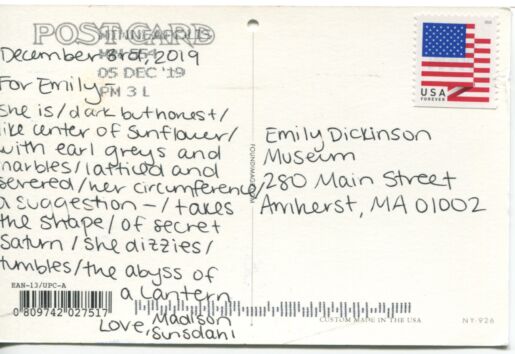 POST CARD
MINNEAPOLIS
MN 554
05 DEC '19
PM 3 L
December 3rd, 2019
For Emily-
she is/dark but honest/
like center of sunflower/
with earl greys and
marbles/latticed and
severed/her circumference/
a suggestion-/takes
the shape/of secret
Saturn/she dizzies/
tumbles/the abyss of
a lantern
Love, Madison
EAN-13/UPC-A
0 809742 027517
FOUNDIMAGE
Emily Dickinson
Museum
280 Main Street
Amherst, MA 01002
USA
FOREVER
CUSTOM MADE IN THE USA
NY-926